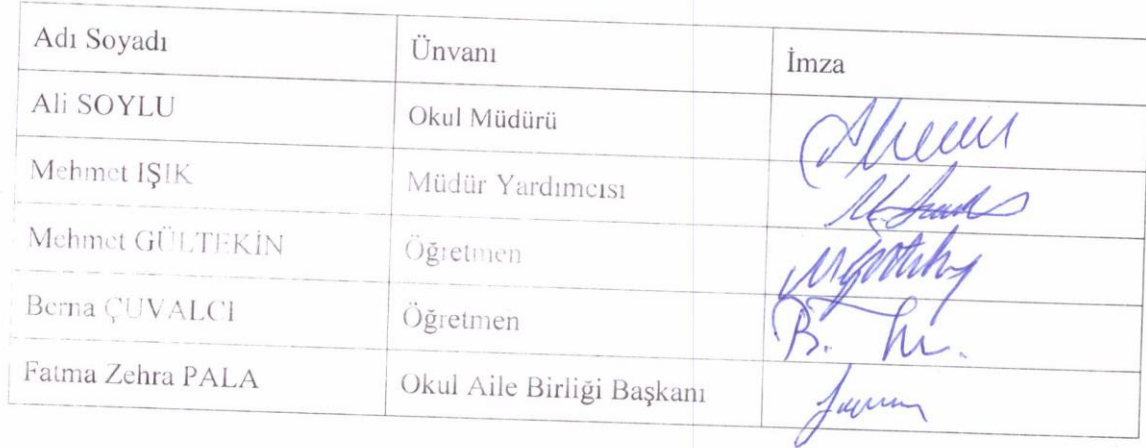 Adı Soyadı Ünvanı İmza
Ali SOYLU Okul Müdürü
Mehmet IŞIK Müdür Yardımcısı
Mehmet GÜLTEKİN Öğretmen
Berna ÇUVALCI Öğretmen
Fatma Zehra PALA Okul Aile Birliği Başkanı